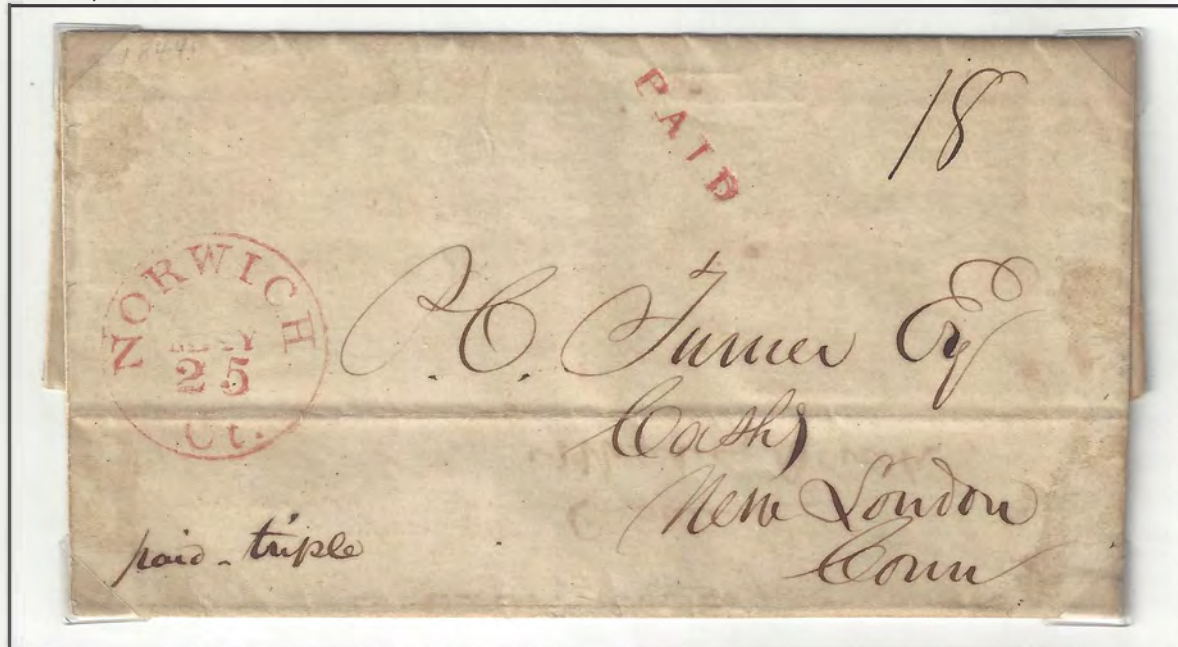 1844
PAID
18
NORWICH
25
Ct.
P. C. Turner Esq
Cash^r
New London
Conn
paid - triple